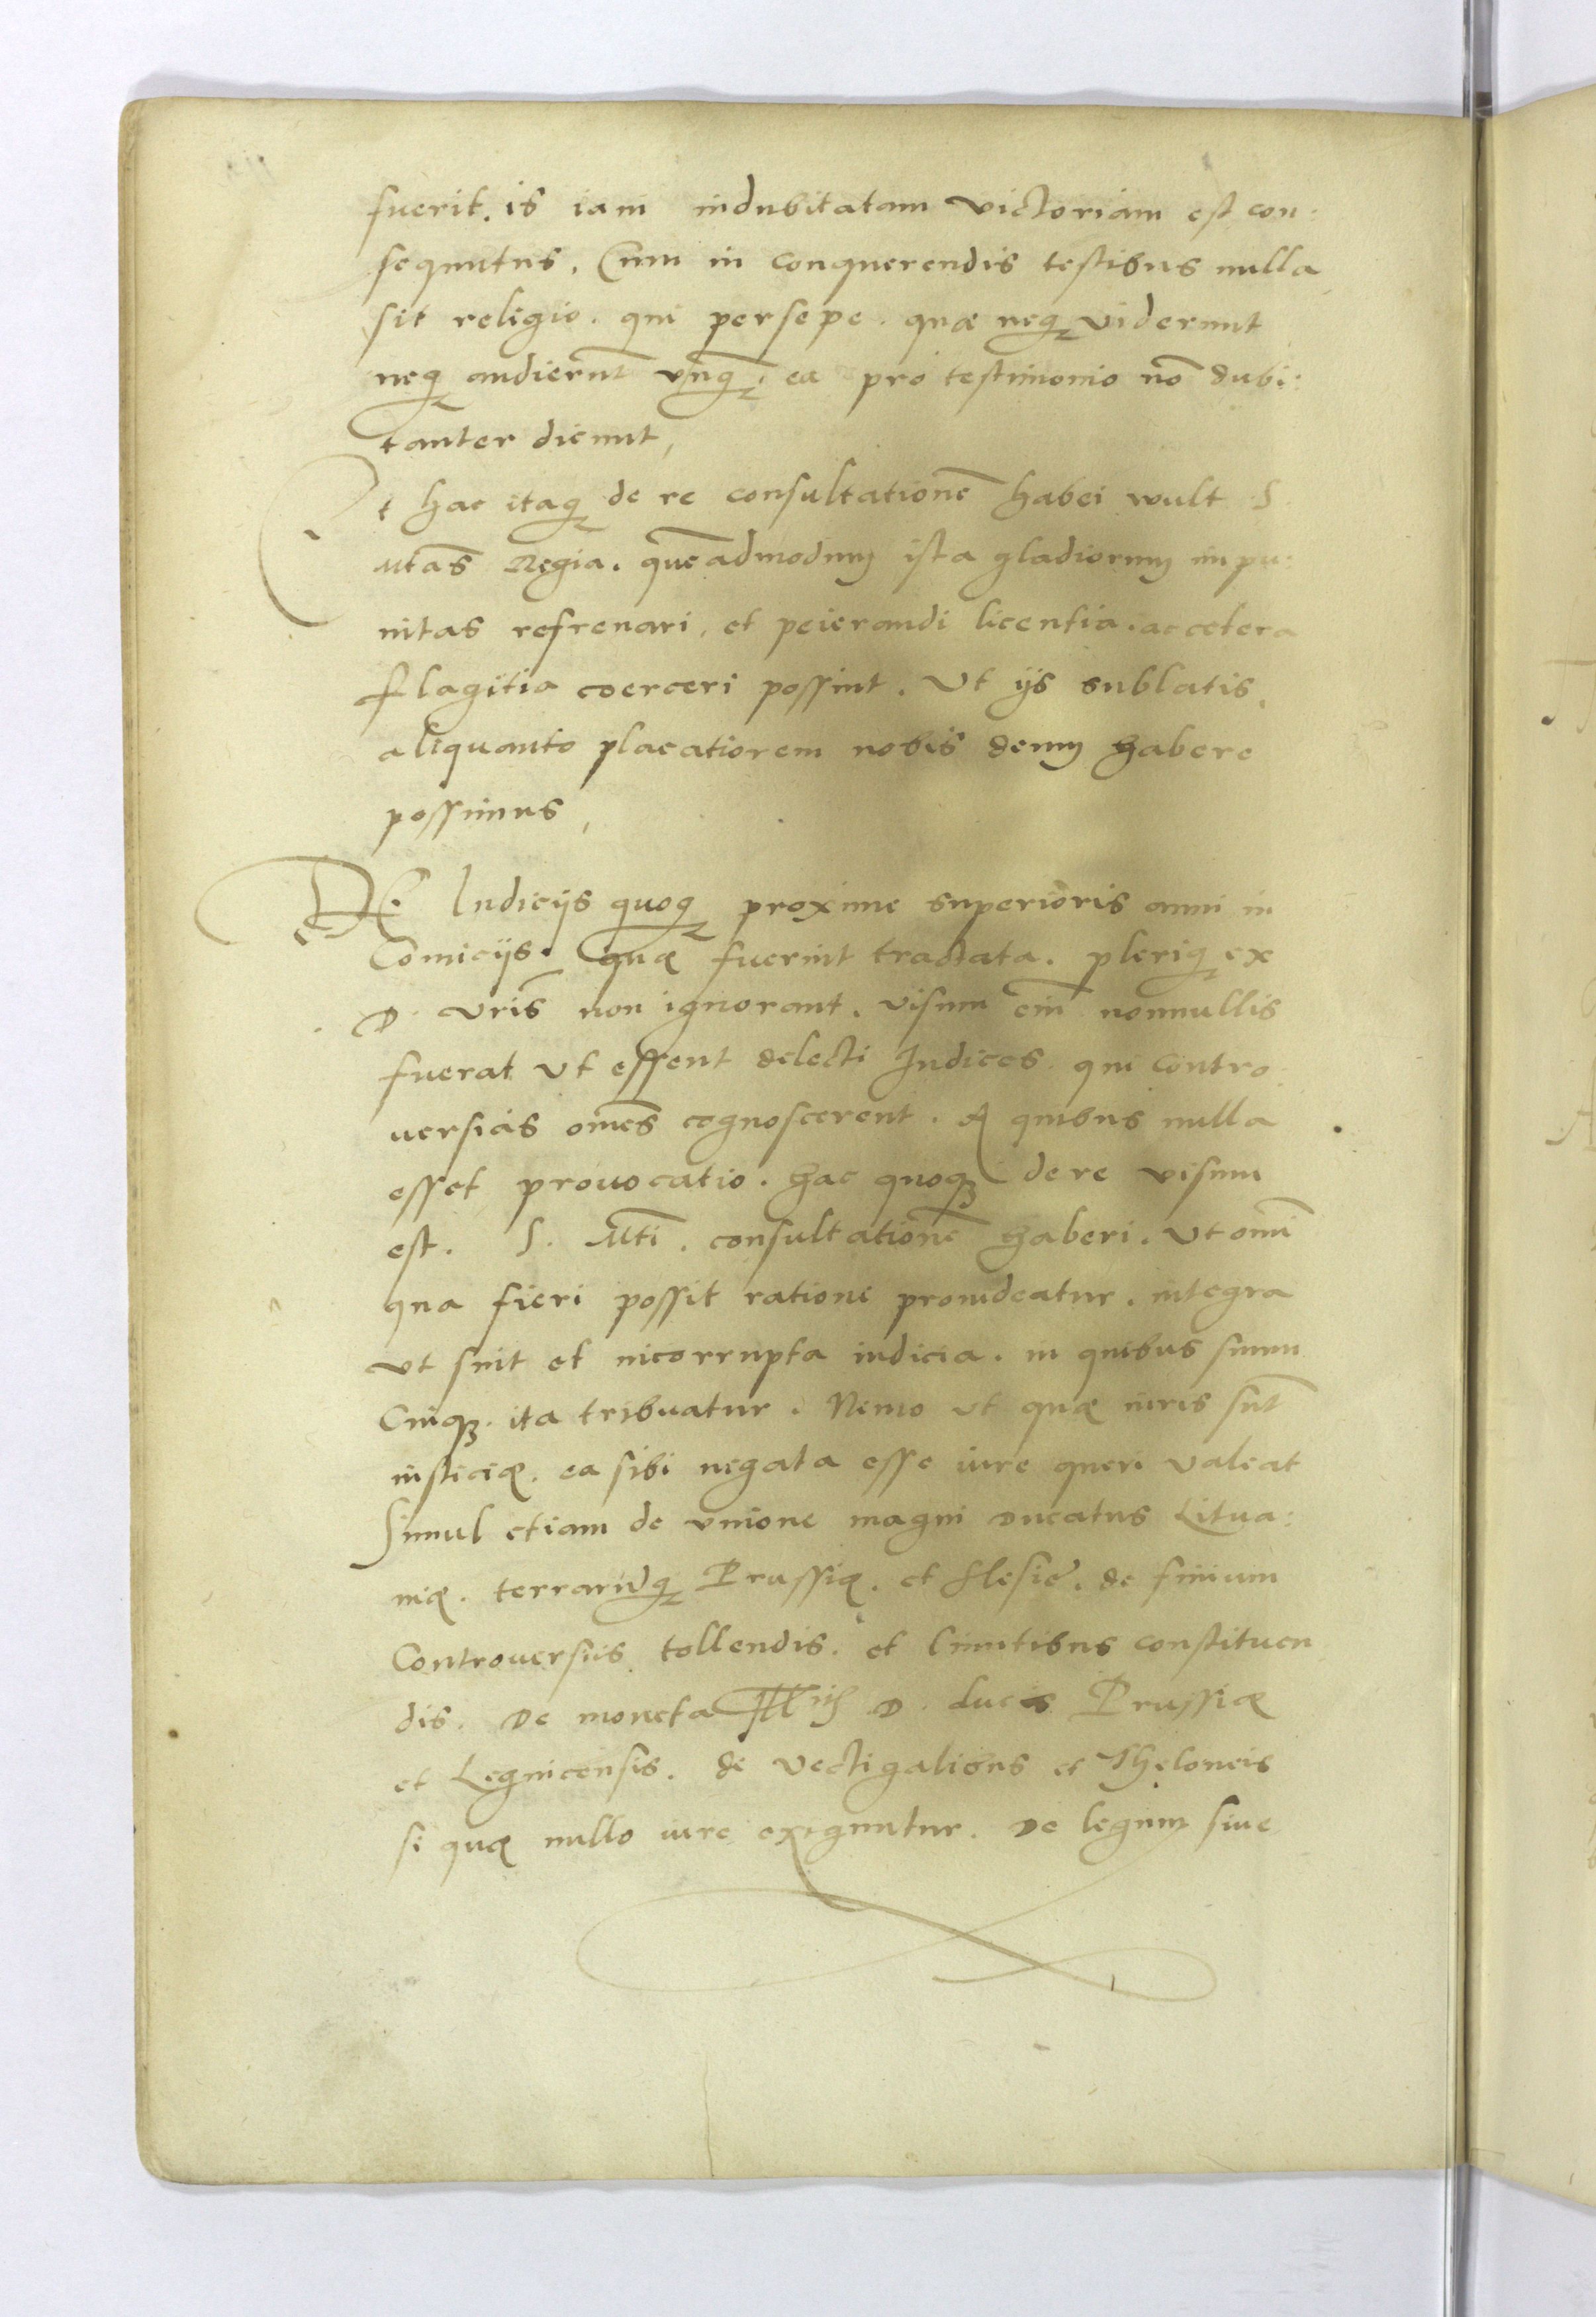 fuerit. is iam indubitatam victoriam est con:
sequutus, Cum in conquerendis testibus nulla
sit religio. qui persepe. quæ neqꝫ viderunt
neqꝫ audierūt vnqꝫ. ea pro testimonio nō dubi:
tanter dicunt,
Et hac itaqꝫ de re consultationē habei wult S.
Mtās Regia. quēadmodum ista gladiorum impu:
nitas refrenari, et peierandi licentia. ac cetera
flagitia coerceri possint. Ut ijs sublatis,
aliquanto placatiorem nobis deum habere
possimus,
DE Iudicijs quoqꝫ proxime superioris anni in
Comicijs. quę fuerint tractata. pleriqꝫ ex
D. vrīs non ignorant. visum em̄ nonnullis
fuerat ut essent delecti Iudices qui contro:
uersias om̄es cognoscerent. A quibus nulla
esset prouocatio. hac quoqꝫ de re visum
est. S. Mtī. consultationē haberi. Ut omī
qua fieri possit ratione prouideatur. integra
ut sint et incorrupta iudicia. in quibus suum
Cuiqꝫ. ita tribuatur. Nemo ut quę iuris sūt
iusticię. ea sibi negata esse iure queri valeat
Simul etiam de vnione magni Ducatus Litua:
nię. terrarūqꝫ Prussię. et Slesie. de finium
Controuersiis tollendis. et limitibus constituen
dis. De moneta Illū D. Ducis Prussię
et Legnicensis. de vectigalibus et Theloneis
si quę nullo iure exiguntur. De legum siue